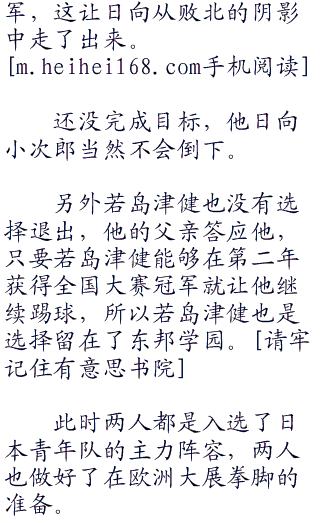 军，这让日向从败北的阴影
中走了出来。
[m.heihei168.com手机阅读]
还没完成目标，他日向
小次郎当然不会倒下。
另外若岛津健也没有选
择退出，他的父亲答应他，
只要若岛津健能够在第二年
获得全国大赛冠军就让他继
续踢球，所以若岛津健也是
选择留在了东邦学园。[请牢
记住有意思书院]
此时两人都是入选了日
本青年队的主力阵容，两人
也做好了在欧洲大展拳脚的
准备。